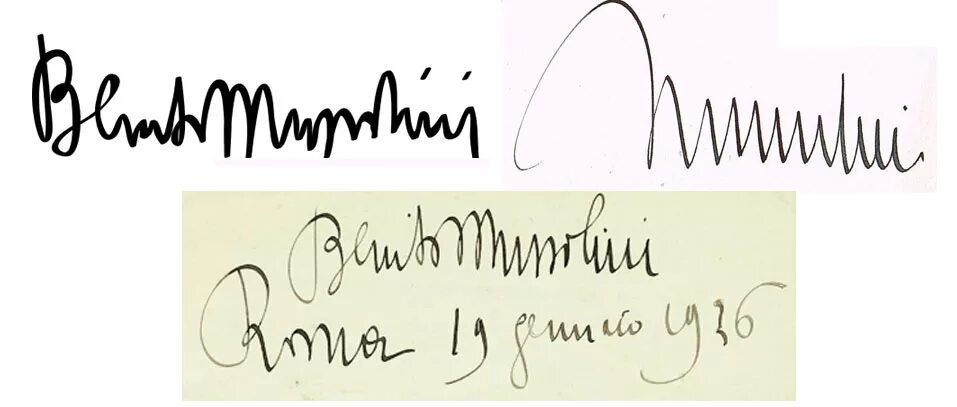 Benito Mussolini
Mussolini
Benito Mussolini
Roma 19 gennaio 1926